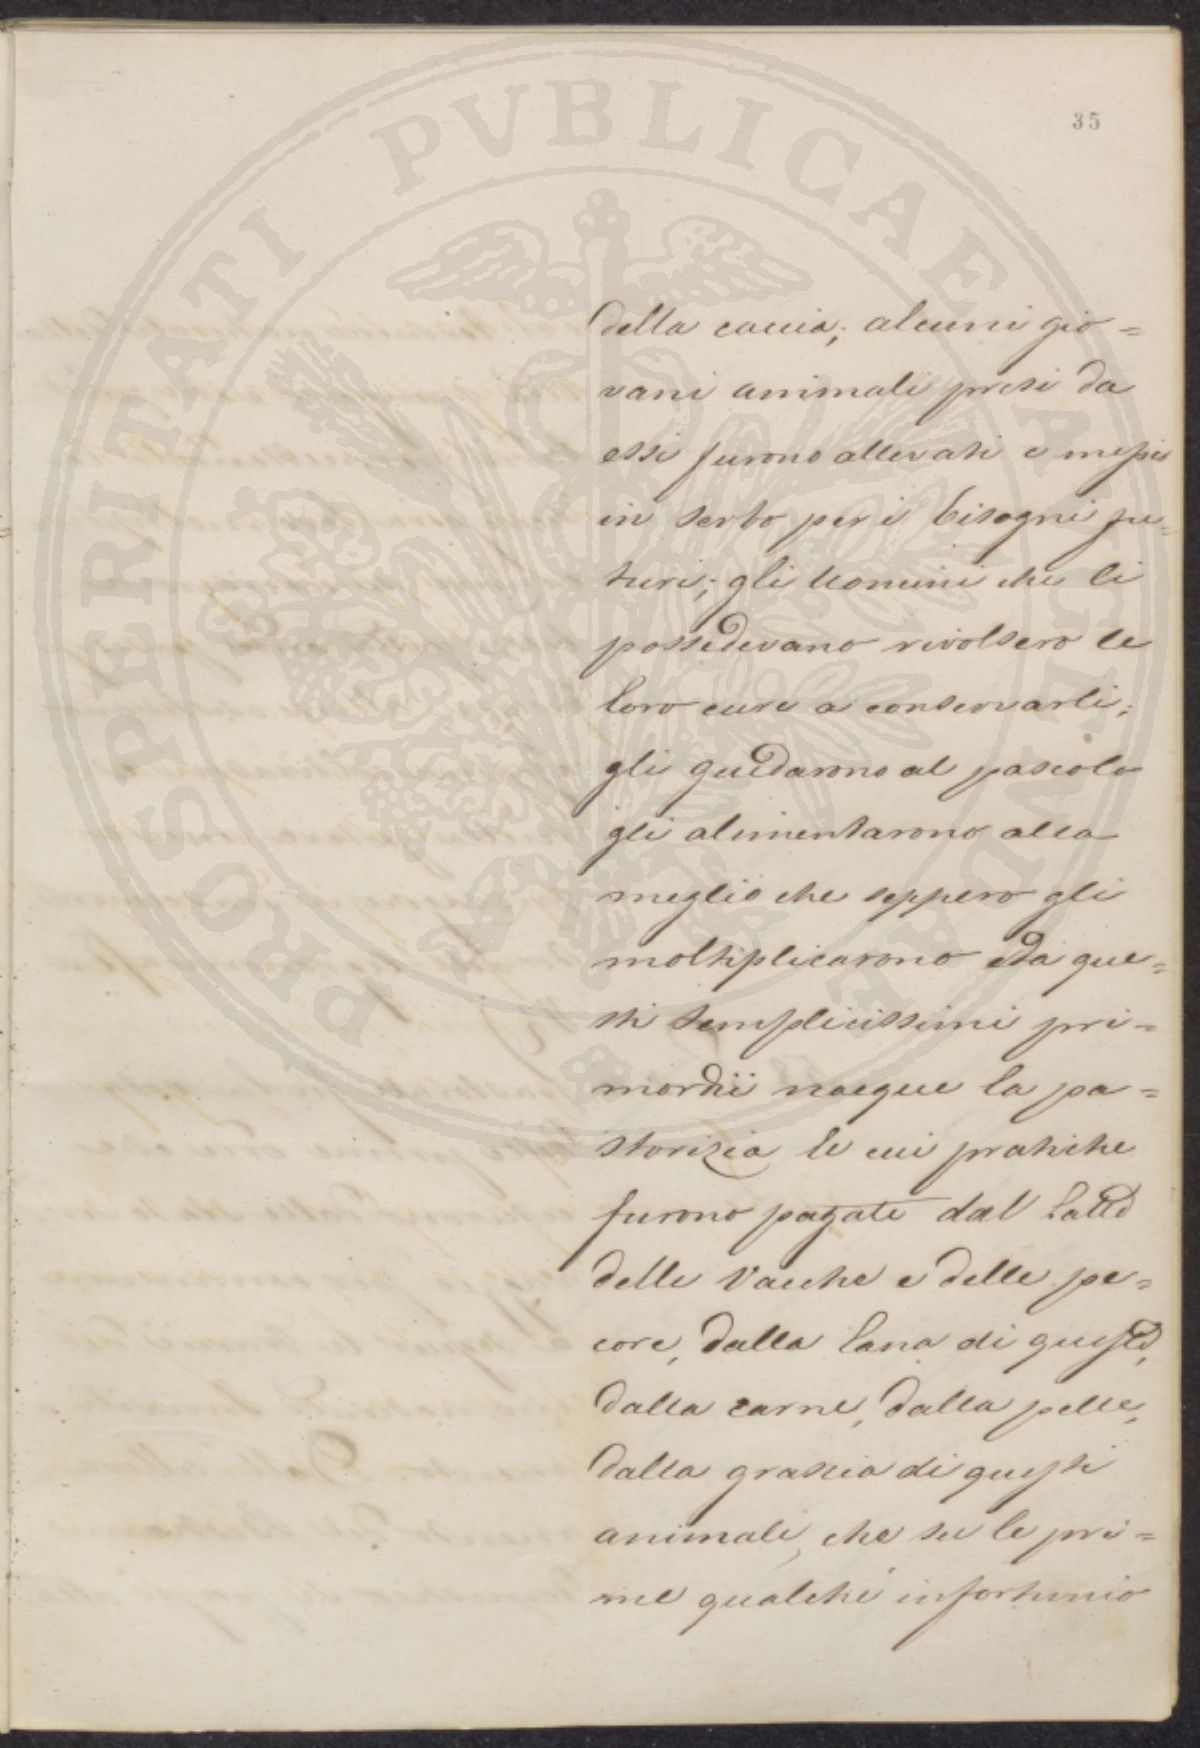 35
PROSPERITATI PVBLICAE AVGENDAE
della caccia; alcuni gio=
vani animali presi da
essi furono allevati e messi
in serbo per i bisogni fu=
turi; gli uomini che li
possedevano rivolsero le
loro cure a conservarli;
gli guidarono al pascolo
gli alimentarono alla
meglio che seppero gli
moltiplicarono e da que=
sti semplicissimi pri=
mordii nacque la pa=
storizia le cui pratiche
furono pagate dal latte
delle vacche e delle pe=
core, dalla lana di queste,
dalla carne, dalla pelle,
dalla grascia di questi
animali, che se le pri=
me qualche infortunio